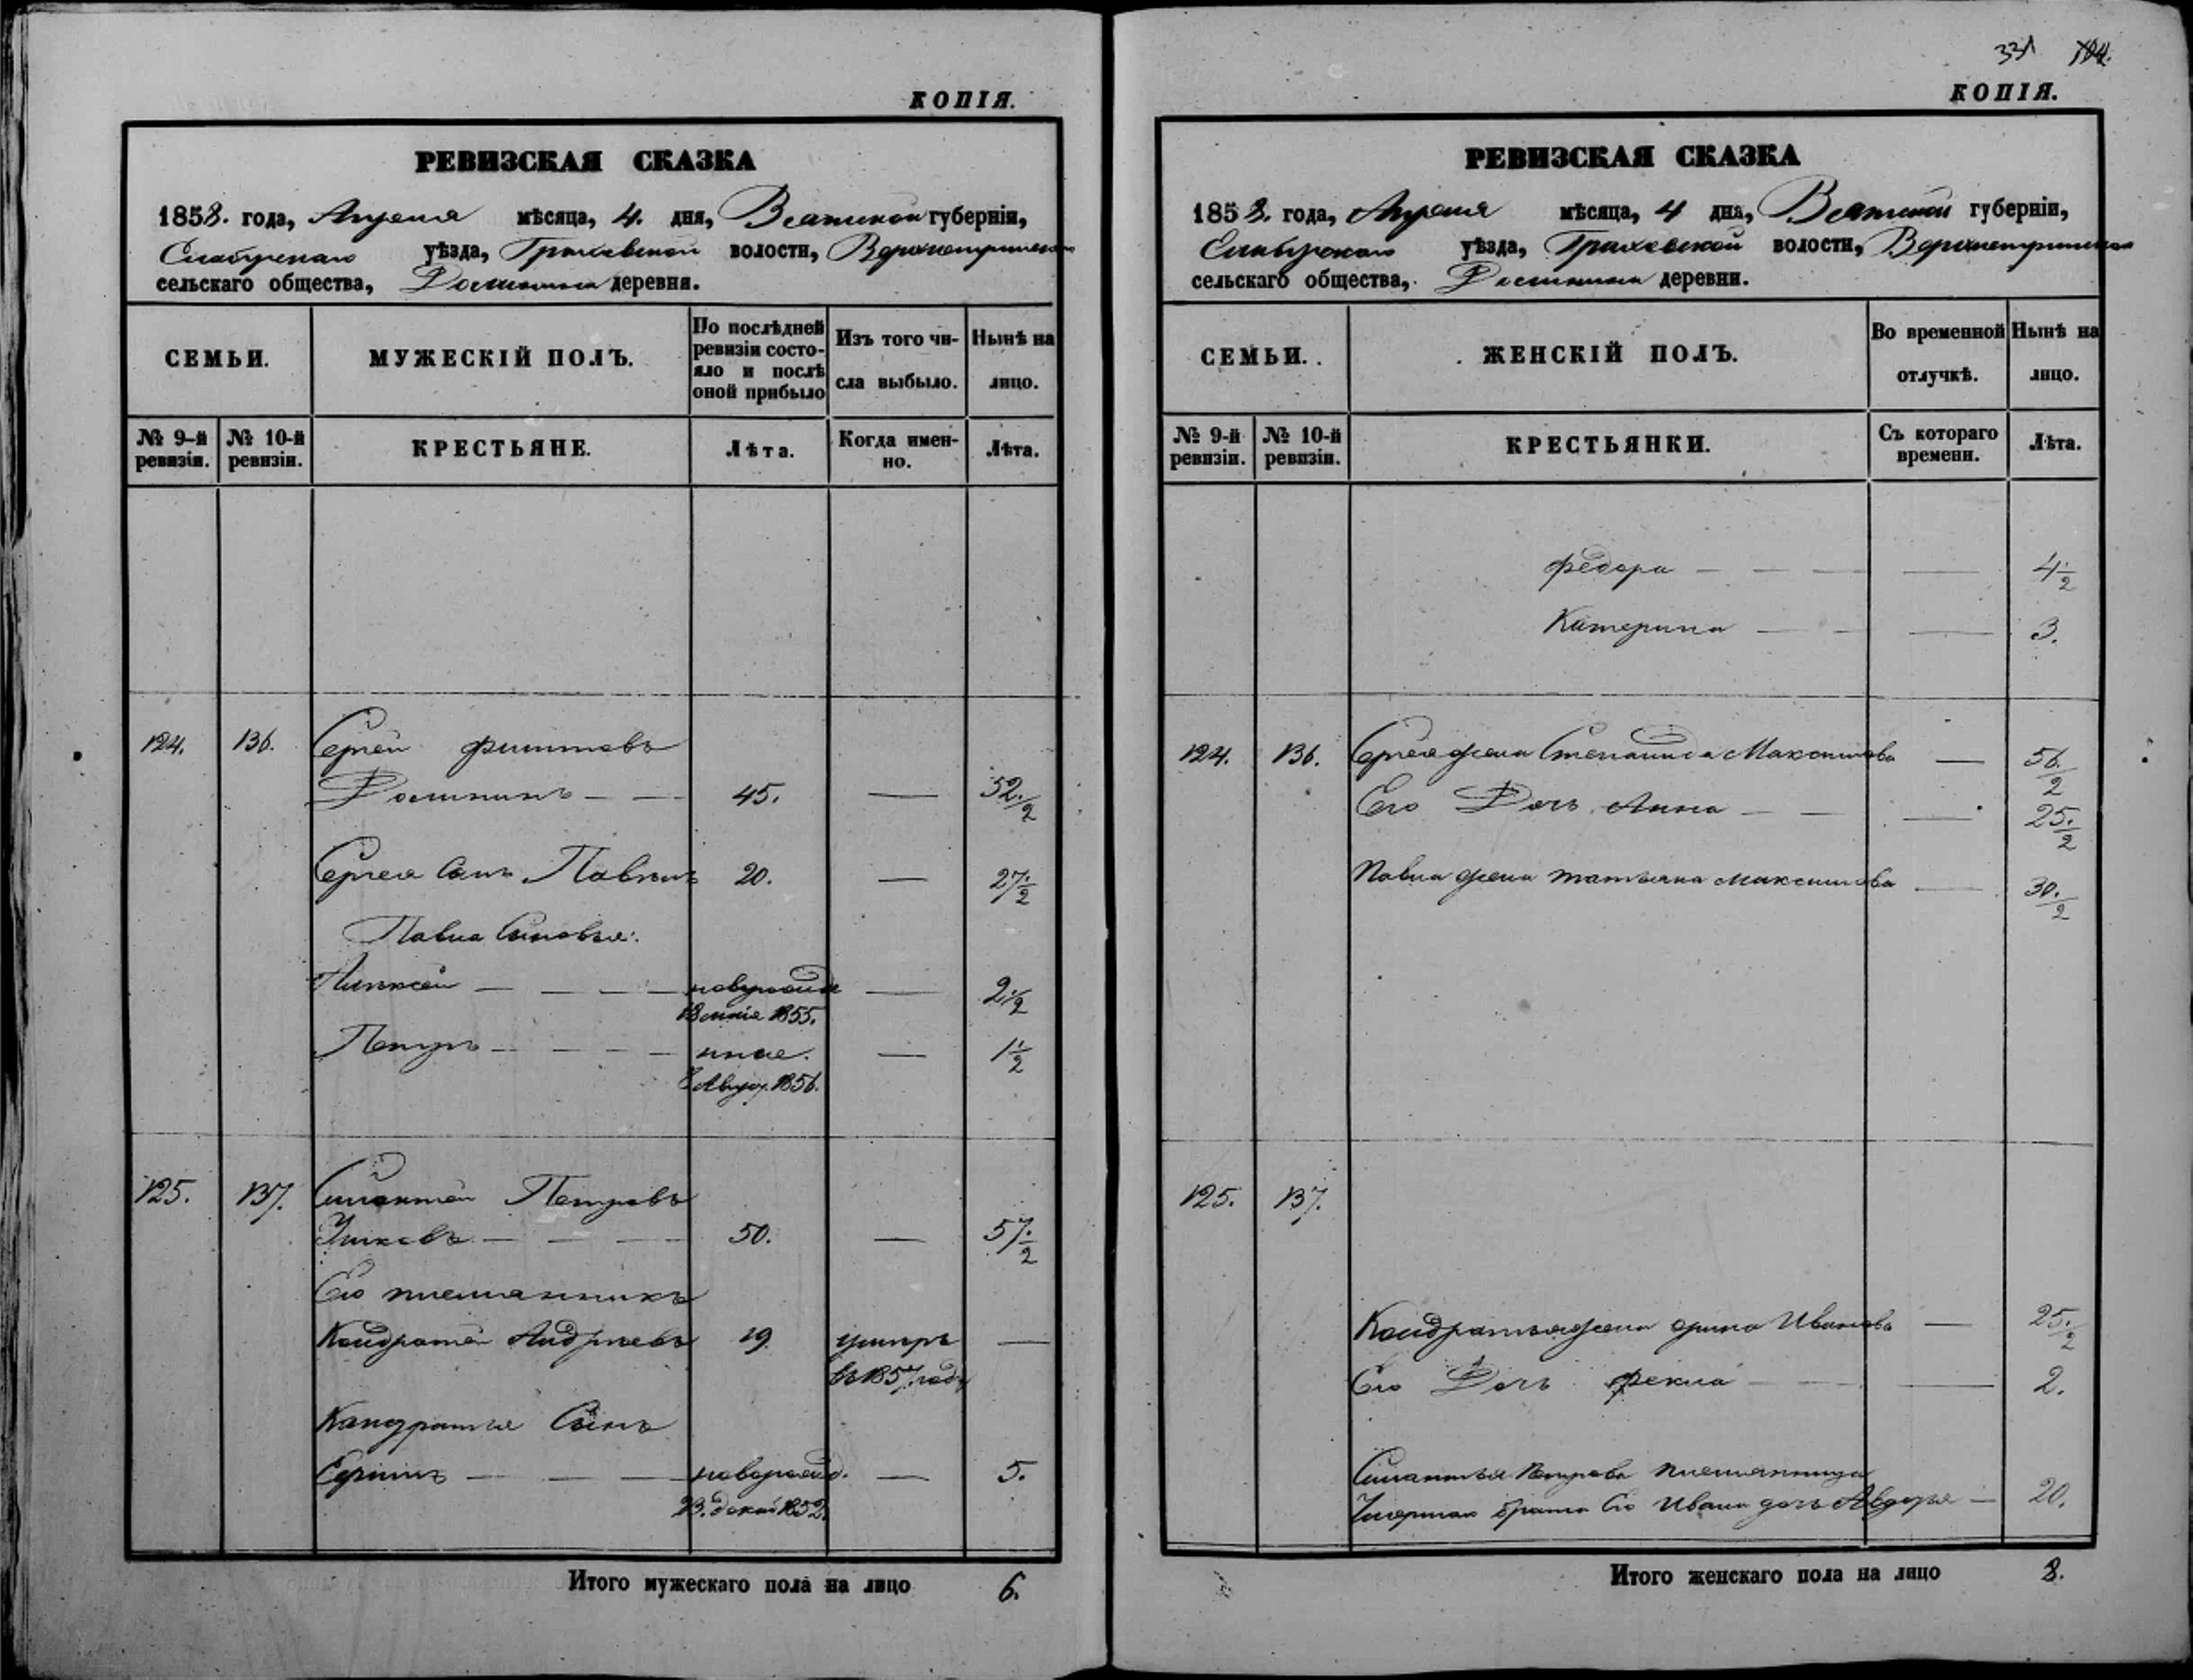 КОПІЯ.
РЕВИЗСКАЯ СКАЗКА
1858. года, Апреля мѣсяца, 4. дня, Вятской губерніи,
Елабужскаго уѣзда, Граховской волости,
сельскаго общества, деревни.
СЕМЬИ. МУЖЕСКІЙ ПОЛЪ. По послѣдней ревизіи состояло и послѣ оной прибыло Изъ того числа выбыло. Нынѣ на лицо.
№ 9-й ревизіи. № 10-й ревизіи. КРЕСТЬЯНЕ. Лѣта. Когда именно. Лѣта.
124. 136. Сергѣй Филиповъ
45. — 52 1/2
Сергея Сынъ Павелъ 20. — 27 1/2
Павла Сыновья:
Алексѣй — — — новорожд — 2 1/2
1855.
Петръ — — — — — 1 1/2
8 Авгус. 1856.
125. 137. Силантѣй Петровъ
50. — 57 1/2
Его племянникъ
Кондратѣй Андрѣевъ 19. умеръ —
въ 1857 году
Кондратья Сынъ
новорожд. — 5.
23. декаб 1852.
Итого мужескаго пола на лицо 6.
331 104.
КОПІЯ.
РЕВИЗСКАЯ СКАЗКА
1858. года, Апреля мѣсяца, 4 дня, Вятской губерніи,
Елабужскаго уѣзда, Граховской волости,
сельскаго общества, деревни.
СЕМЬИ. ЖЕНСКІЙ ПОЛЪ. Во временной отлучкѣ. Нынѣ на лицо.
№ 9-й ревизіи. № 10-й ревизіи. КРЕСТЬЯНКИ. Съ котораго времени. Лѣта.
Федора — — — — 4 1/2
Катерина — — — 3.
124. 136. Сергея жена Степанида Максимова — 56 1/2
Его Дочь Анна — — — 25 1/2
Павла жена Татьяна Максимова — 30 1/2
125. 137.
Кондратья жена Орина Иванова — 25 1/2
Его Дочь Фекла — — — 2.
Силантья Петрова племянница
Умершаго брата Его Ивана дочь Авдотья — 20.
Итого женскаго пола на лицо 8.